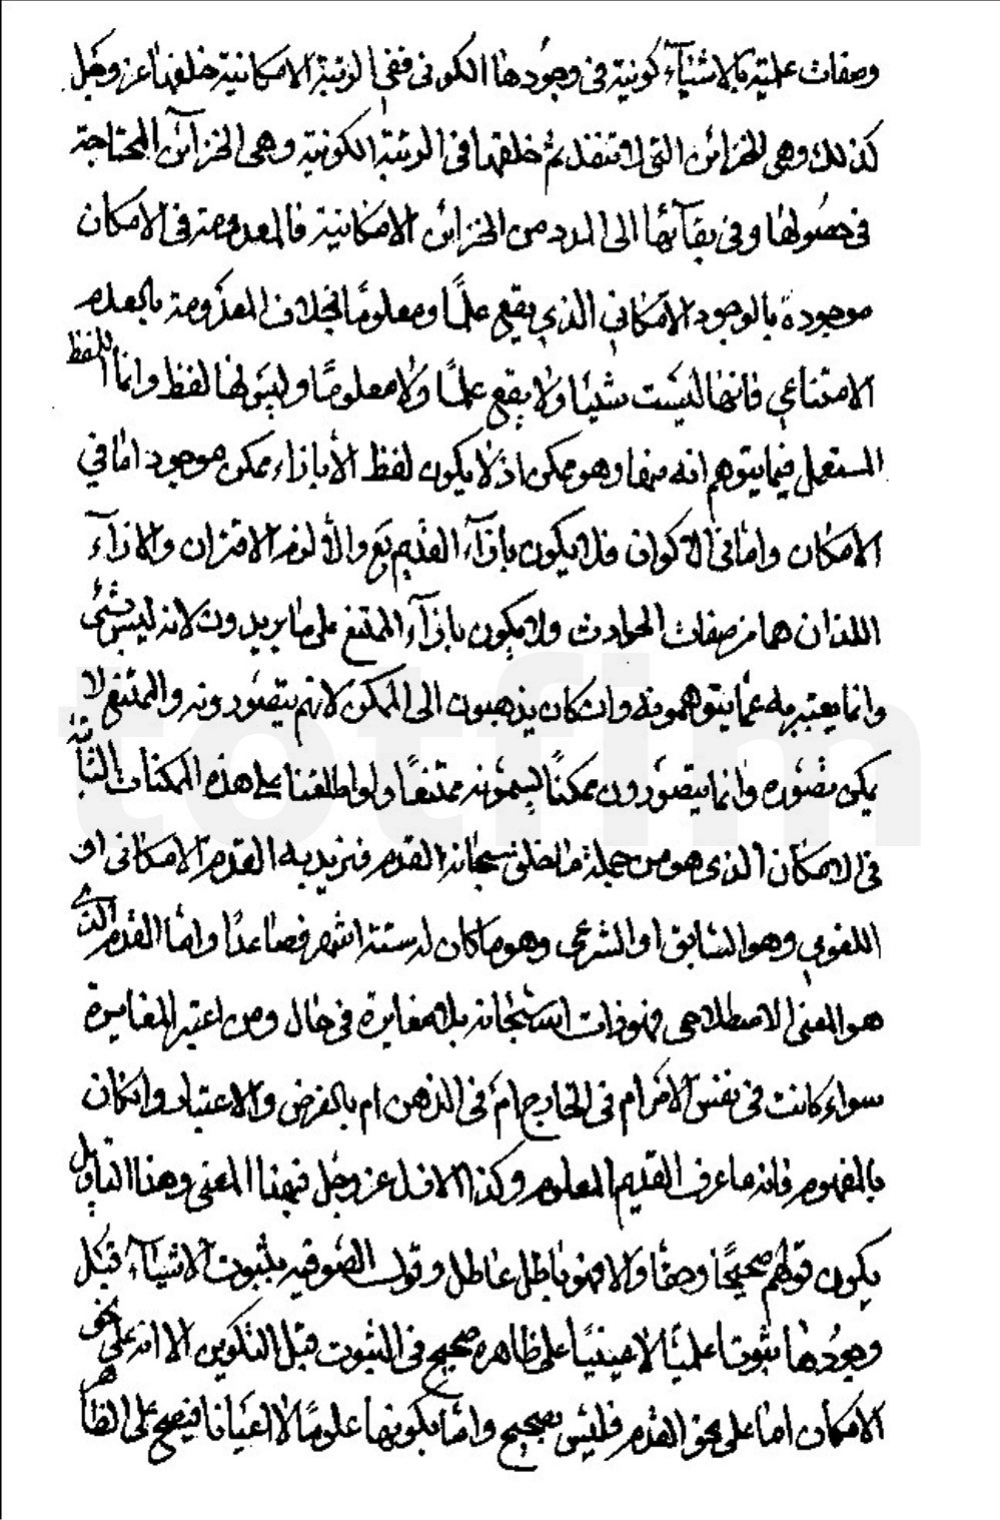 وصفات علمية كالاشيآء كونية فى وجودها الكونى ففى الرتبة الامكانية خلقها عز وجل
كذلك وهى الخزائن التى لا تنفد ثم خلقها فى الرتبة الكونية وهى الخزآئن المحتاجة
فى حصولها وفى بقآئها الى المدد من الخزائن الامكانية فالمعدومة فى الامكان
موجودة بالوجود الامكانى الذى يقع علمًا ومعلومًا بخلاف المعدومة بالعدم
الامتناعي فانها ليست شيئا ولا يقع علمًا ولا معلومًا وليس لها لفظ وانما اللفظ
المستعمل فيما يتوهم انه منها وهو ممكن اذ لا يكون لفظ الا بازاء ممكن موجود اما في
الامكان واما فى الاكوان فلا يكون بازآء القديم تع والا لزم الاقتران والازآء
اللذان هما من صفات الحوادث ولا يكون بازآء الممتنع على ما يريدون لانه ليس بشئ
وانما يعتبر به عما يتوهمونه وان كان يذهبون الى الممكن لانهم يتصورونه والممتنع لا
يمكن تصوره وانما يتصورون ممكنًا يسمونه ممتنعًا ولو اطلقنا على هذه الممكنات الثابتة
فى الامكان الذى هو من جملة ما خلق سبحانه القدم فنريد به القدم الامكانى او
اللغوي وهو السابق او الشرعى وهو ما كان له ستة اشهر فصاعدًا واما القدم الذى
هو المعنى الاصطلاحى فهو ذات الله سبحانه بلا مغايرة فى حال ومن اعتبر المغايرة
سواء كانت فى نفس الامر ام فى الخارج ام فى الذهن ام بالفرض والاعتبار وان كان
بالمفهوم فانه ما عرف القديم المعلوم وكذا الازل عز وجل فبهذا المعنى وهذا التاويل
يكون قولهم صحيحًا وحقا والا فهو باطل عاطل وقول الصوفيه بثبوت الاشيآء قبل
وجودها ثبوتا علميًا لا عينيًا على ظاهره صحيح فى الثبوت قبل التكوين الا انه على نحو
الامكان اما على نحو القدم فليس بصحيح واما بكونها علومًا لا اعيانا فيصح على الظاهر